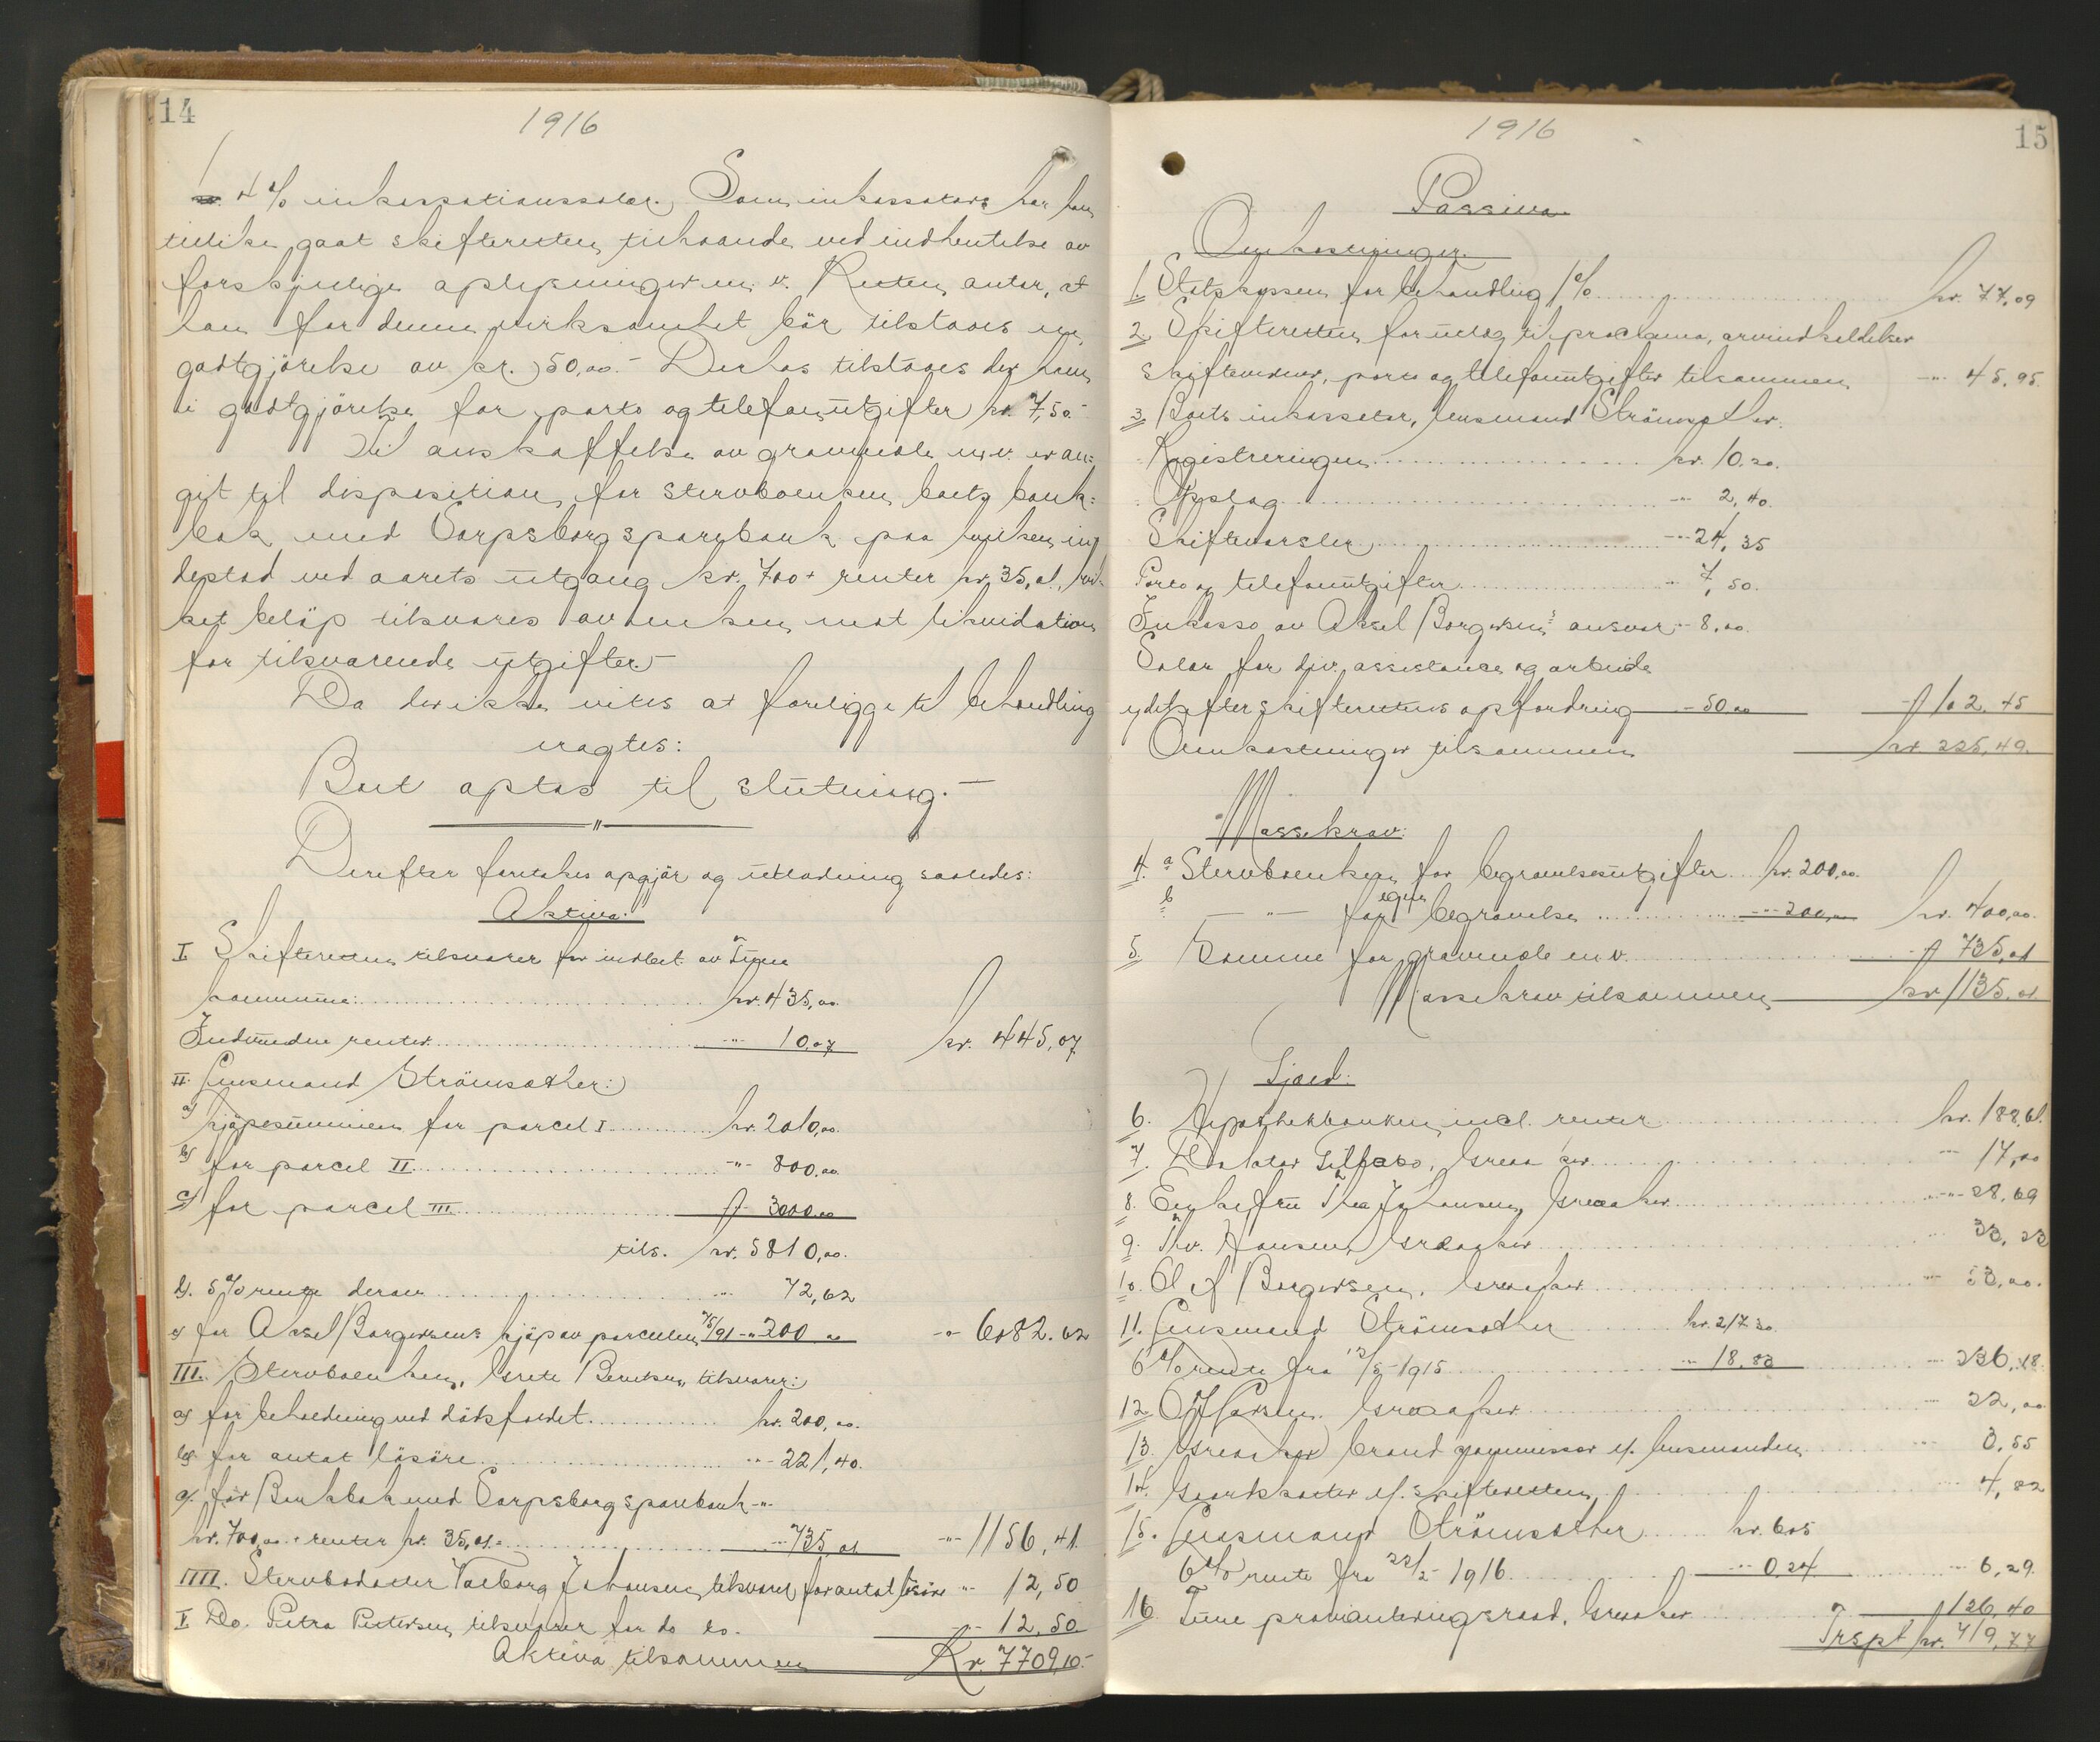 14
1916
4 % inkassationssalær. Som inkassator har han
tillike gaat skifteretten tilhaande ved indhentelse av
forskjellige oplysninger m. v. Retten antar, at
han for denne virksomhet bör tilstaaes en
godtgjörelse av kr. 50,00.- Derhos tilstaaes der ham
i godtgjörelse for porto og telefonutgifter kr. 7,50.-
Til anskaffelse av gravmæle m.v. er an-
git til disposition for stervboenken boets bank-
bok med Sarpsborg sparebank paa hvilken in-
destod ved aarets utgang kr. 700 + renter kr. 35,01, hvil-
ket belöp tilsvares av enken mot likvidation
for tilsvarende utgifter.-
Da der ikke vites at foreligge til behandling
ragtes:
Boet optas til slutning.-
Derefter foretakes opgjör og utlodning saaledes:
Aktiva:
I Skifteretten tilsvarer for indbet. av Tune
kommune: kr. 435,00.
Indvundne renter 10,07 kr. 445,07
II. Lensmand Strömsæther:
a) kjöpesummen for parcel I kr. 2010,00.
b) for parcel II -"- 800,00.
c) for parcel III 3000.00
tils. kr. 5810,00.
d). 5 % rente derav 72,62
e) for Aksel Borgersens kjöp av parcellen 200 00 -"- 6082.62
III. Stervboenken, Grete Bentsen tilsvarer:
a) for beholdning ved dödsfaldet kr. 200,00.
b) for antat lösöre -"- 221,40.
c). for Bankbok med Sarpsborg sparebank -"-
kr. 700,00 + renter kr. 35,01.= -"- 735,01 -"- 1156,41.
IIII. Stervbodatter Valborg Johansen tilsvarer for antat lösöre -"- 12,50
V Do. Petra Pettersen tilsvarer for do do. 12,50
Aktiva tilsammen Kr. 7709,10.-
1916
15
Passiva.
Omkostninger.
1. Statskassen for behandling 1 % kr. 77,09
2. Skifteretten for utlæg til proclama, arveindkaldelser
skiftevarsler, porto og telefonutgifter tilsammen -"- 45,95.
3. Boets inkassator, lensmand Strömsæther.
Registreringen kr. 10.20.
Opslag -"- 2,40.
Skiftevarsler -"- 24,35
Porto og telefonutgifter -"- 7,50.
Inkasso av Aksel Borgersens ansvar -"- 8,00.
Salær for div. assistance og arbeide
ydet efter skifterettens opfordring - 50 00 102.45
Omkostninger tilsammen kr 225,49.
Massekrav:
4. a Stervboenken for begravelsesutgifter kr. 200,00.
b -"- for egen begravelse -"- 200,00 kr. 400,00.
5. Samme for gravmæle m.v. 735,01
Massekrav tilsammen kr 1135,01
Gjæld:
6. Hypothekbanken incl. renter kr. 188,61.
7. Doktor Greaaker -"- 17,00
8. Enkefru Thea Johansen, Greaaker -"- 28,69
9. Thv. Hansen, Greaaker 33,23
10. Olaf Borgersen, Greaaker -"- 53,00.
11. Lensmand Strömsæther kr. 217 30
6 % rente fra 1915 -"- 18,83 -"- 236,18.
12. Larsen Greaaker -"- 22,00
13. Greaaker brandkommissær v/. lensmanden -"- 3,55
14. v/. skifteretten -"- 4,82
15. Lensmand Strömsæther kr. 6.05
6 % rente fra 1916 -"- 0,24 -"- 6,29.
16. Tune provianteringsraad, Greaaker 126,40
Trspt kr. 719,77